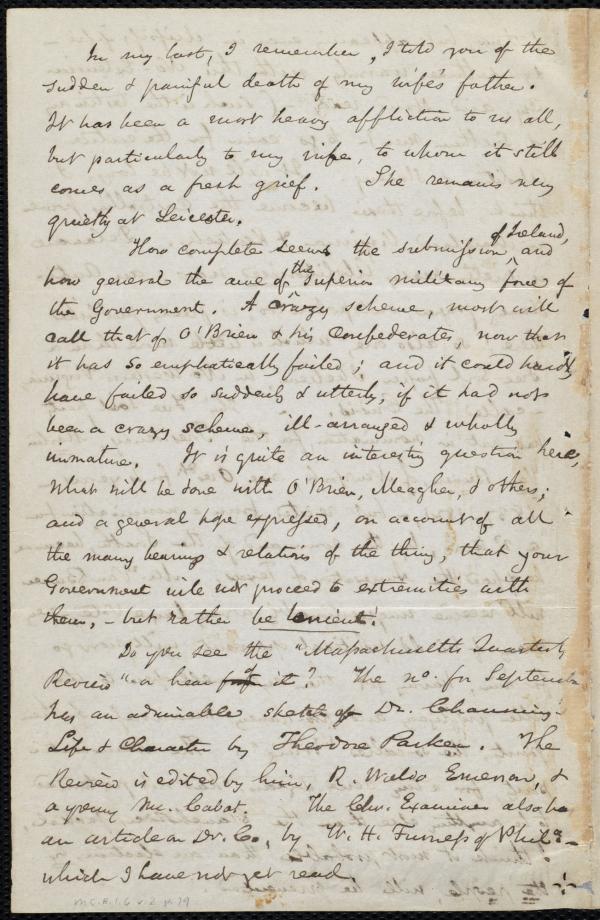 In my last, I remember, I told you of the
sudden & painful death of my wife's father.
It has been a most heavy affliction to us all,
but particularly to my wife, to whom it still
comes as a fresh grief. She remains very
quietly at Leicester.
How complete seems the submission of Ireland, and
how general the awe of the superior military force of
the Government. A crazy scheme, most will
call that of O'Brien & his Confederates, now that
it has so emphatically failed; and it could hardly
have failed so suddenly & utterly, if it had not
been a crazy scheme, ill-arranged & wholly
immature. It is quite an interesting question here,
what will be done with O'Brien, Meagher, & others;
and a general hope expressed, on account of all
the many bearings & relations of the thing, that your
Government will not proceed to extremities with
them, - but rather be lenient!
Do you see the "Massachusetts Quarterly
Review" or hear of it? The no. for September
has an admirable sketch of Dr. Channing's
Life & Character by Theodore Parker. The
Review is edited by him, R. Waldo Emerson, &
a young Mr. Cabot. The Chr. Examiner also has
an article on Dr. C., by W. H. Furness of Phila -
which I have not yet read.
M.C.A.1.6 v.2 p.79